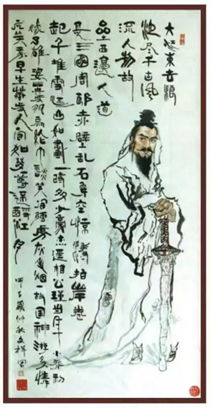 大江東去浪
淘盡千古風
流人物故
壘西邊人道
是三國周郎赤壁亂石穿空驚濤拍岸卷
起千堆雪江山如畫一時多少豪傑遙想公瑾當年小喬初
嫁了雄姿英發羽扇綸巾談笑間檣櫓灰飛煙滅故國神游多情
應笑我早生華髮人間如夢一尊還酹江月
甲子歲仲秋